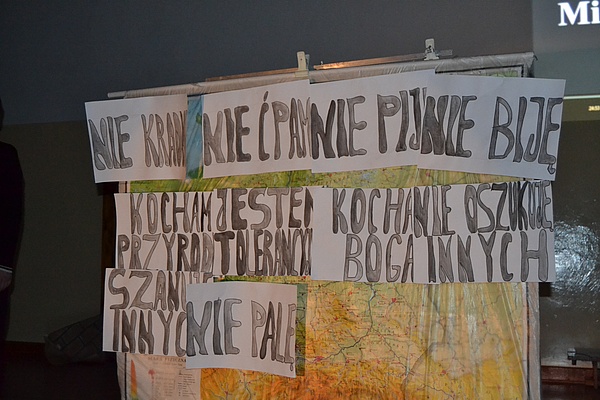 Mi
NIE KRA
NIE ĆPAM
NIE PIJ
NIE BIJĘ
KOCHAM
PRZYROD
JESTEM
TOLERANCY
KOCHA
BOGA
NIE OSZUKUJĘ
INNYCH
SZANU
INNYC
NIE PALĘ